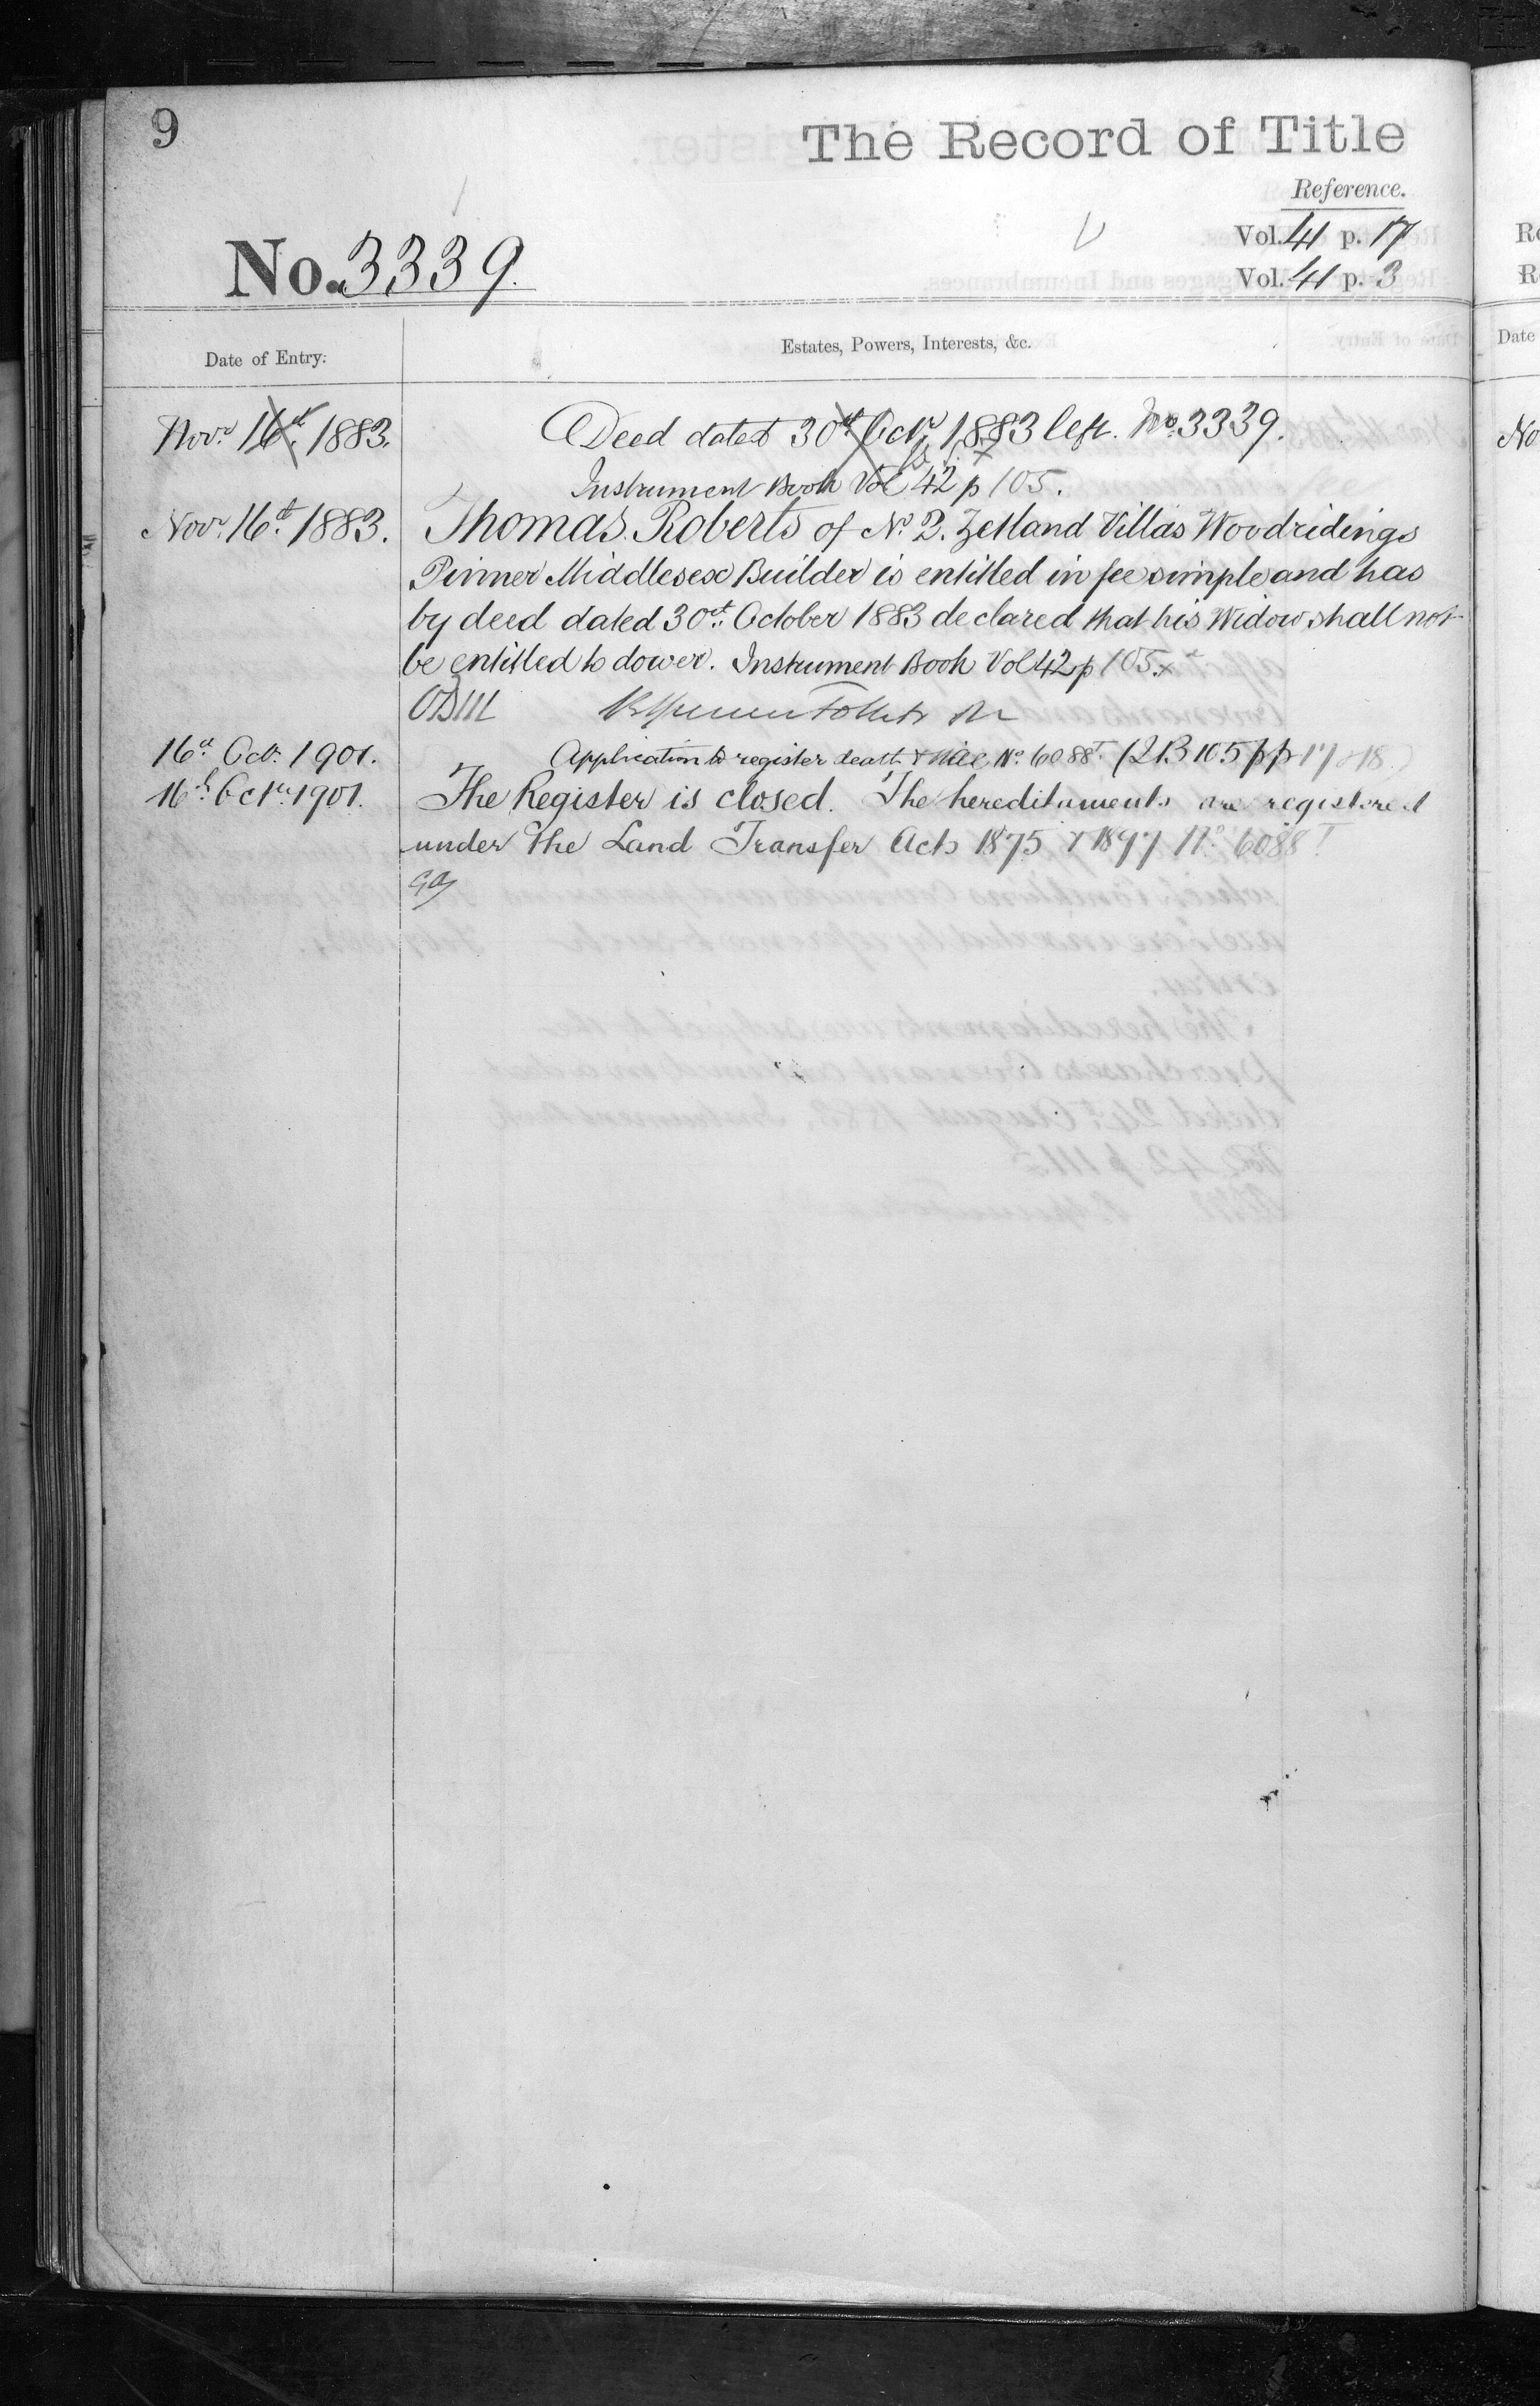 9
The Record of Title
Reference.
Vol. 41 p. 17
No. 3339.
Vol. 41 p. 3
Date of Entry.
Estates, Powers, Interests, &c.
Novr. 16th. 1883.
Deed dated 30th Octr. 1883 left. No. 3339.
Instrument Book Vol 42 p 105.
Novr. 16th. 1883.
Thomas Roberts of No. 2. Zetland Villas Woodridings
Pinner Middlesex Builder is entitled in fee simple and has
by deed dated 30th. October 1883 declared that his Widow shall not
be entitled to dower. Instrument Book Vol 42 p 105.
16th Octr. 1901.
Application to register death No. 6088T (2B 105 pp 17 & 18)
16th Octr. 1901.
The Register is closed. The hereditaments are registered
under the Land Transfer Acts 1875 & 1897 No. 6088T.
Date
No